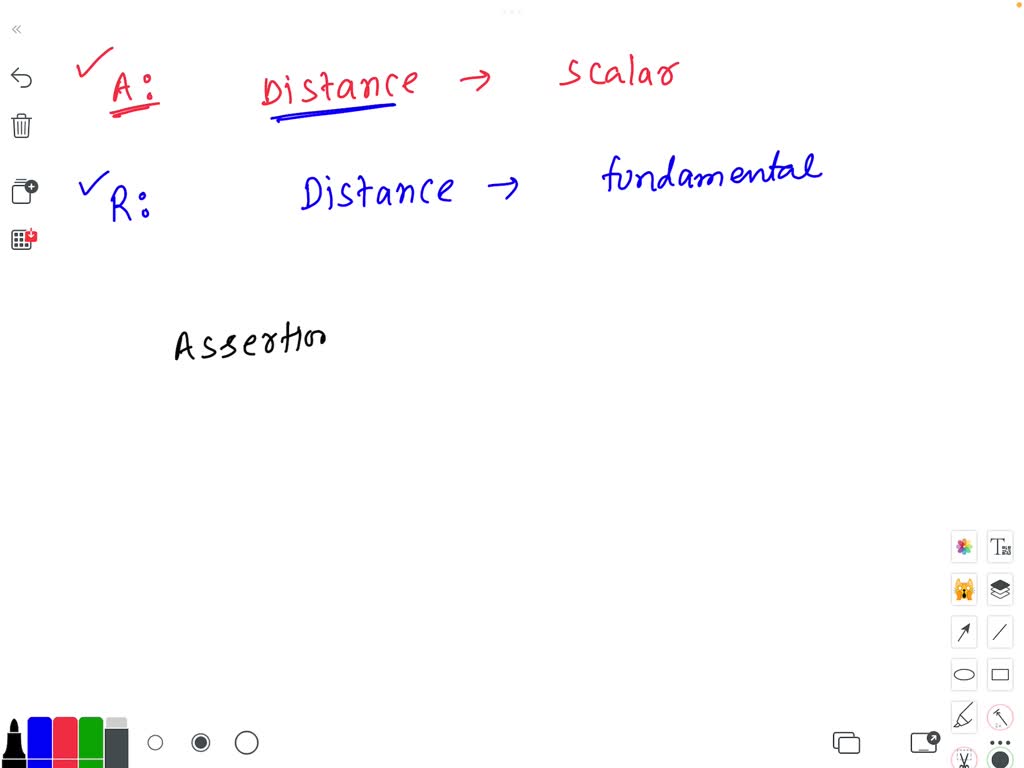 A: Distance → scalar
R: Distance → fundamental
Assertion